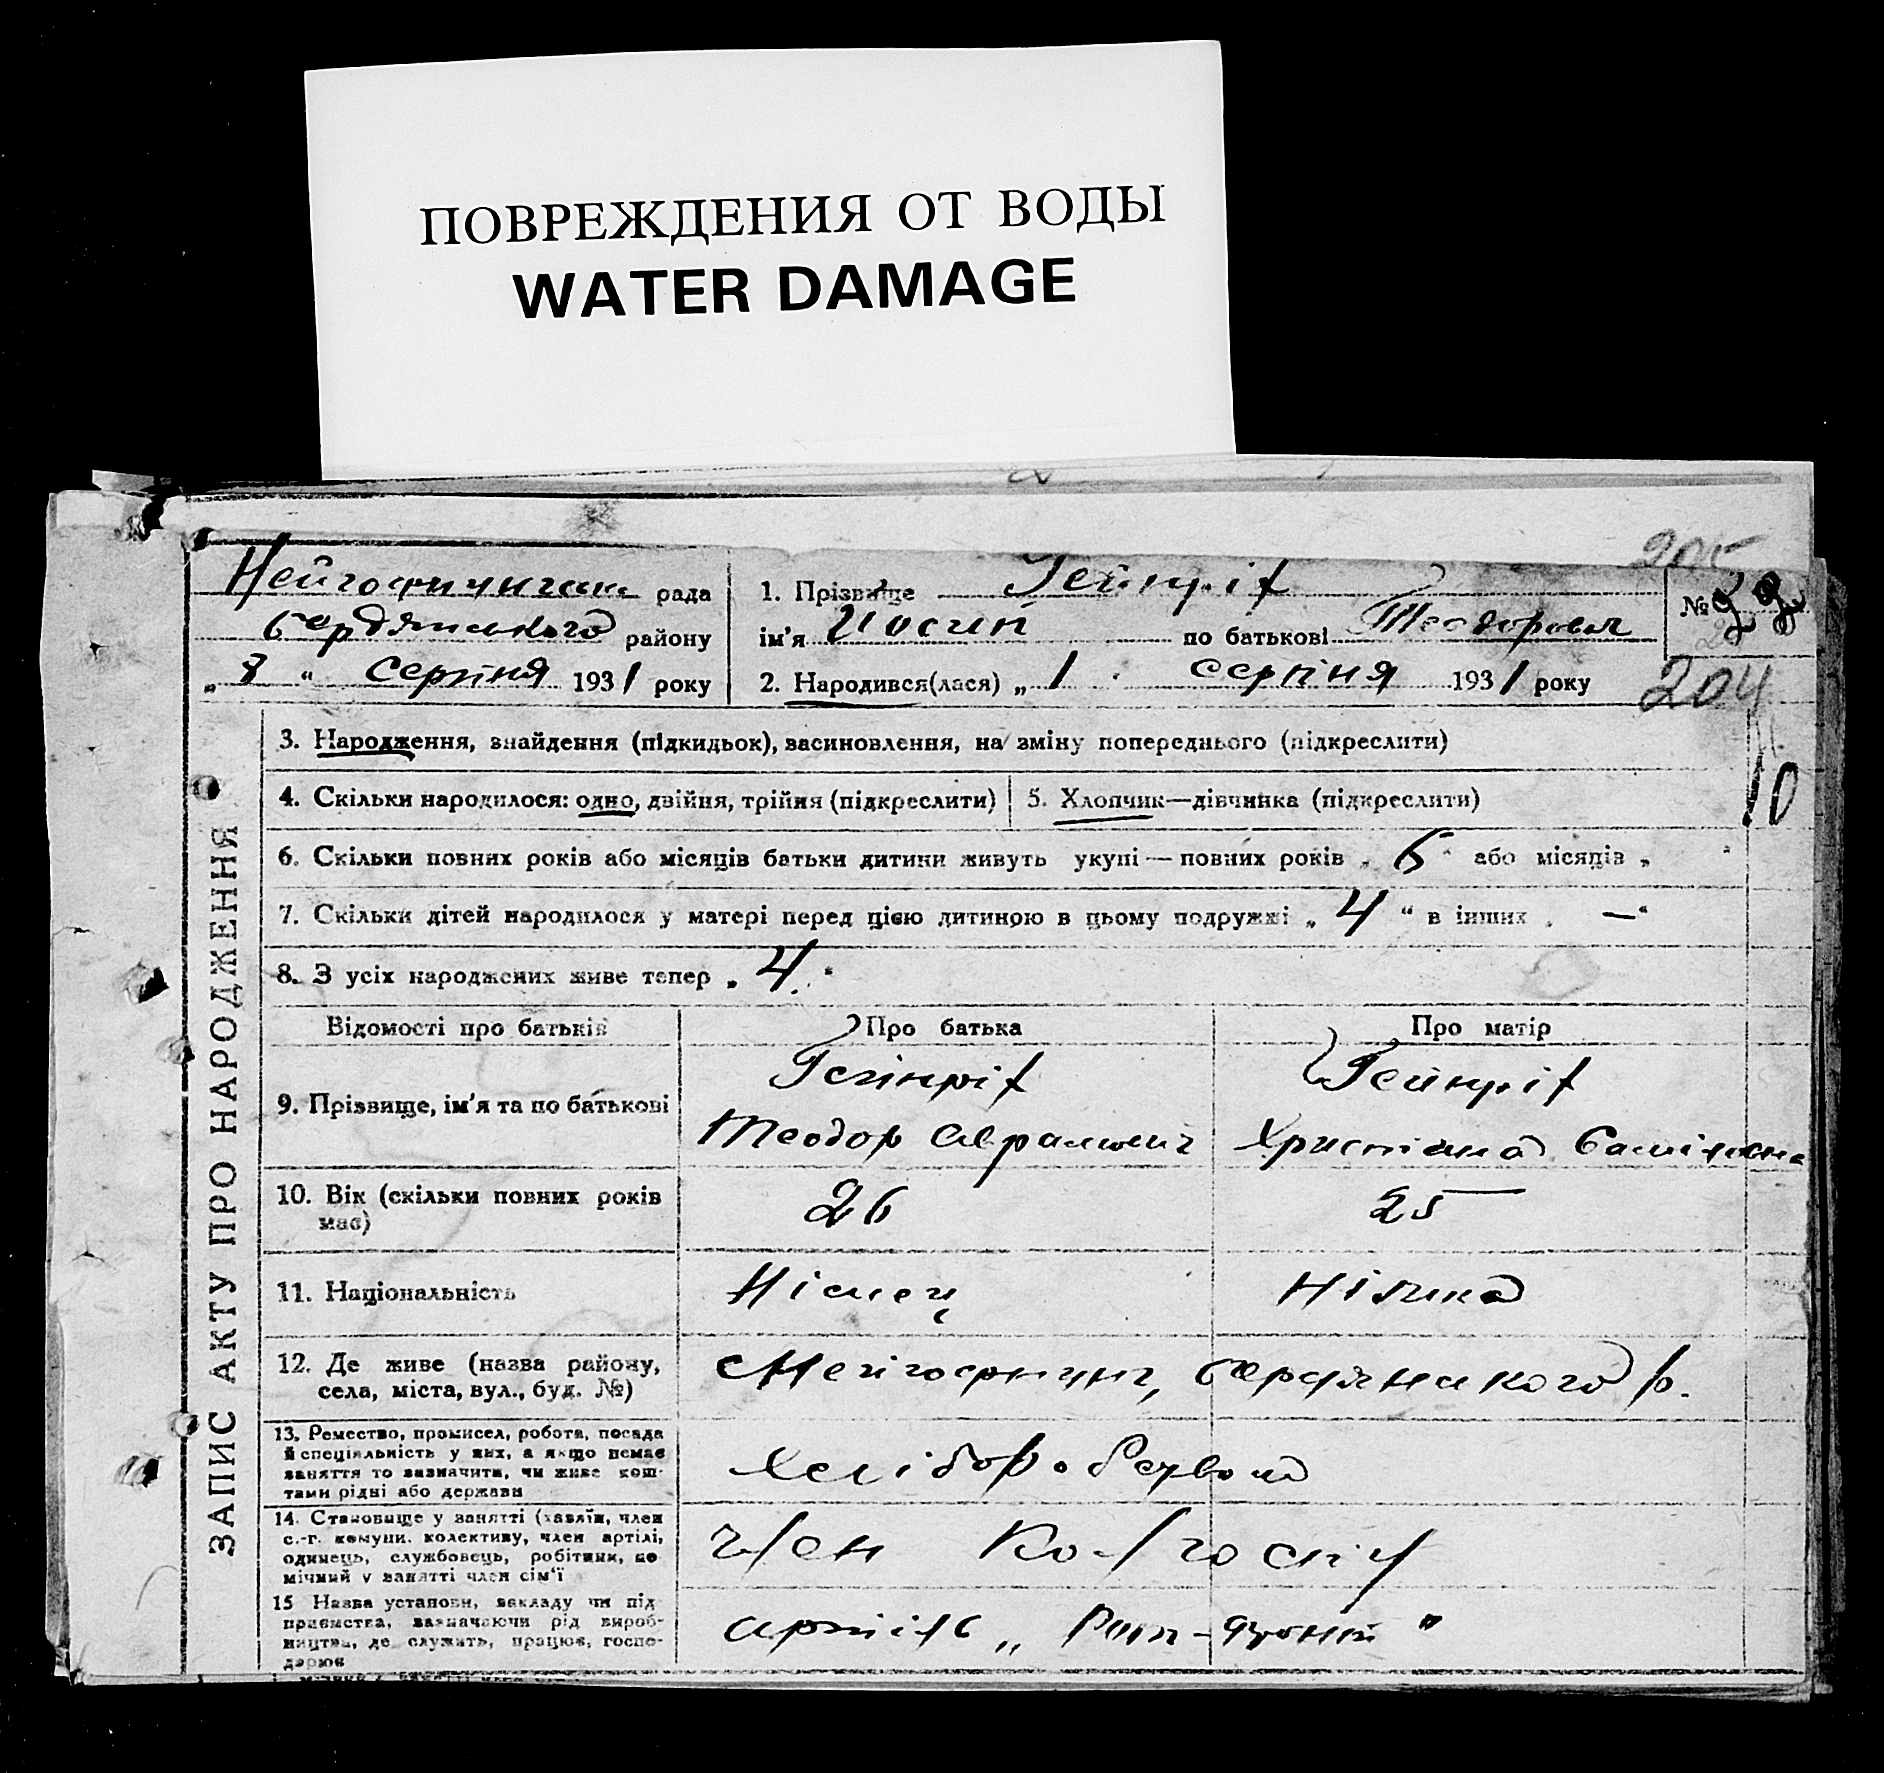 ПОВРЕЖДЕНИЯ ОТ ВОДЫ
WATER DAMAGE
205
рада
1. Прізвище Гейнріх
№ 22
Бердянського району
ім'я Йосип по батькові Теодорович
„ 8 “ Серпня 1931 року
2. Народився(лася) „ 1 Серпіня 1931 року
204
ЗАПИС АКТУ ПРО НАРОДЖЕННЯ
3. Народження, знайдення (підкидьок), васиновлення, на зміну попереднього (підкреслити)
10
4. Скільки народилося: одно, двійня, трійня (підкреслити)
5. Хлопчик—дівчинка (підкреслити)
6. Скільки повних років або місяців батьки дитини живуть укупі — повних років „ 6 “ або місяців „ “
7. Скільки дітей народилося у матері перед цією дитиною в цьому подружжі „ 4 “ в інших „ — “
8. З усіх народжених живе тепер „ 4 “
Відомості про батьків
Про батька
Про матір
9. Прізвище, ім'я та по батькові
Гейнріх
Теодор
Гейнріх
Христіана
10. Вік (скільки повних років
має)
26
25
11. Національність
Німець
Німка
12. Де живе (назва району,
села, міста, вул., буд. №)
Бердянського р.
13. Ремество, промисел, робота, посада
й спеціяльність у них, а якщо немає
заняття то зазначити, чи живе кош-
тами рідні або держави
Хлібороб
14. Становище у занятті (хазяїн, член
с.-г. комуни, колективу, член артілі,
одинець, службовець, робітник, по
мічний у занятті член сім'ї
член Колгоспу
15 Назва установи, закладу чи під
приємства, зазначаючи рід вироб-
ництва, де служить, працює, госпо-
дарює
артіль „ “